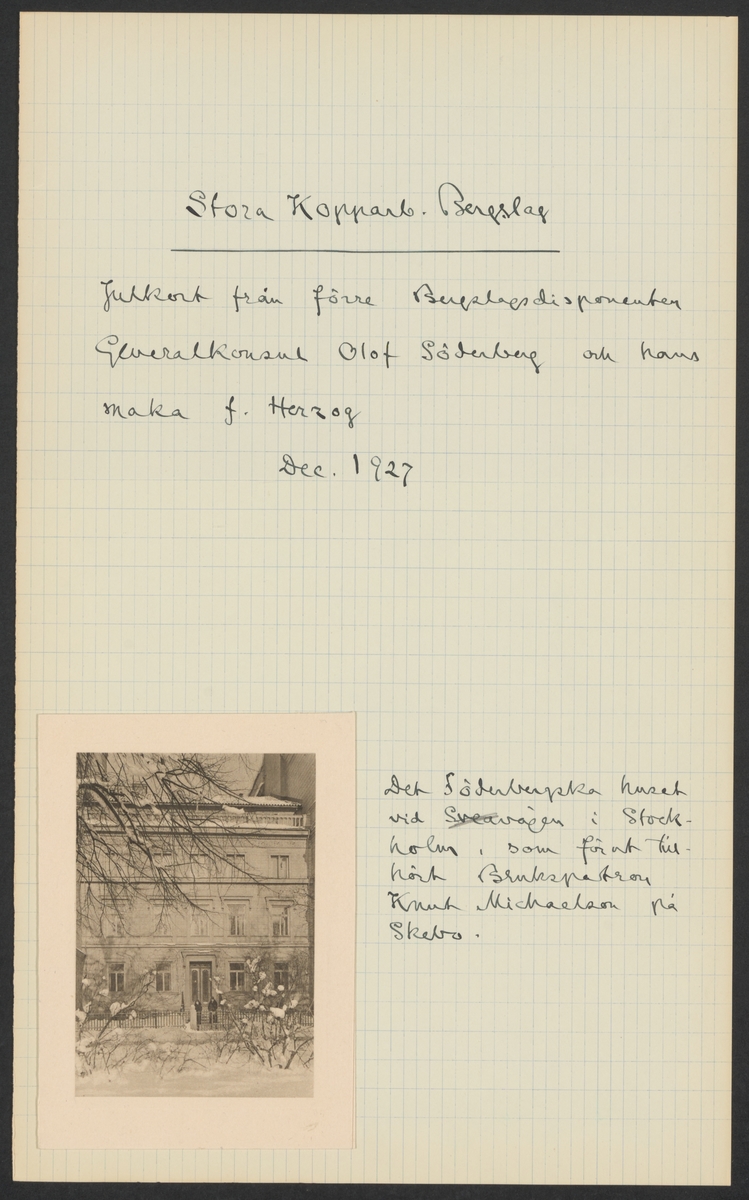 Stora Kopparb. Bergslag
Julkort från förre Bergslagsdisponenten
Generalkonsul Olof Söderberg och hans
maka f. Herzog
Dec. 1927
Det Söderbergska huset
vid Sveavägen i Stock-
holm, som förut till-
hört Brukspatron
Knut Michaelson på
Skebo.